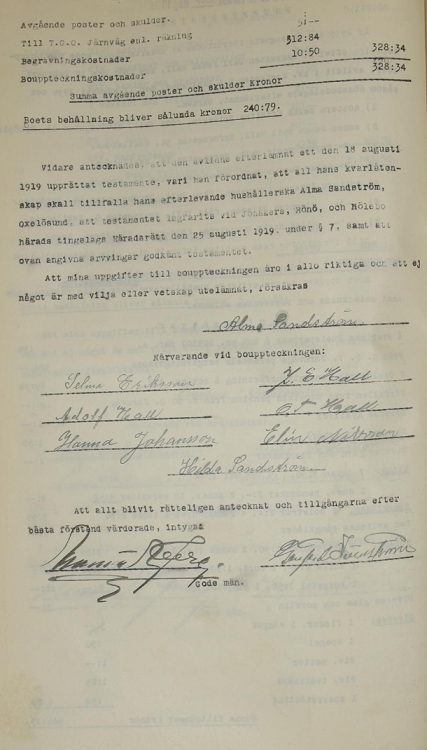 Avgående poster och skulder.
Till T.G.O. Järnväg enl. räkning
Begravningskostnader 312:84
Bouppteckningskostnader 10:50 328:34
Summa avgående poster och skulder kronor 328:34
Boets behållning bliver sålunda kronor 240:79.
Vidare antecknades, att den avlidne efterlämnat ett den 18 augusti
1919 upprättat testamente, vari han förordnat, att all hans kvarlåten-
skap skall tillfalla hans efterlevande hushållerska Alma Sandström,
oxelösund, att testamentet lagfarits vid Jönåkers, Rönö, och Hölebo
härads tingslags Häradsrätt den 25 augusti 1919. under § 7, samt att
ovan angivna arvingar godkänt testamentet.
Att mina uppgifter till bouppteckningen äro i allo riktiga och att ej
något är med vilja eller vetskap utelämnat, försäkras
Alma Sandström
Närvarande vid bouppteckningen:
Selma Eriksson J. E Hall
Adolf Hall
Hanna Johansson Elin
Hilda Sandström
Att allt blivit rätteligen antecknat och tillgångarna efter
bästa förstånd värderade, intyga:
Gode män.